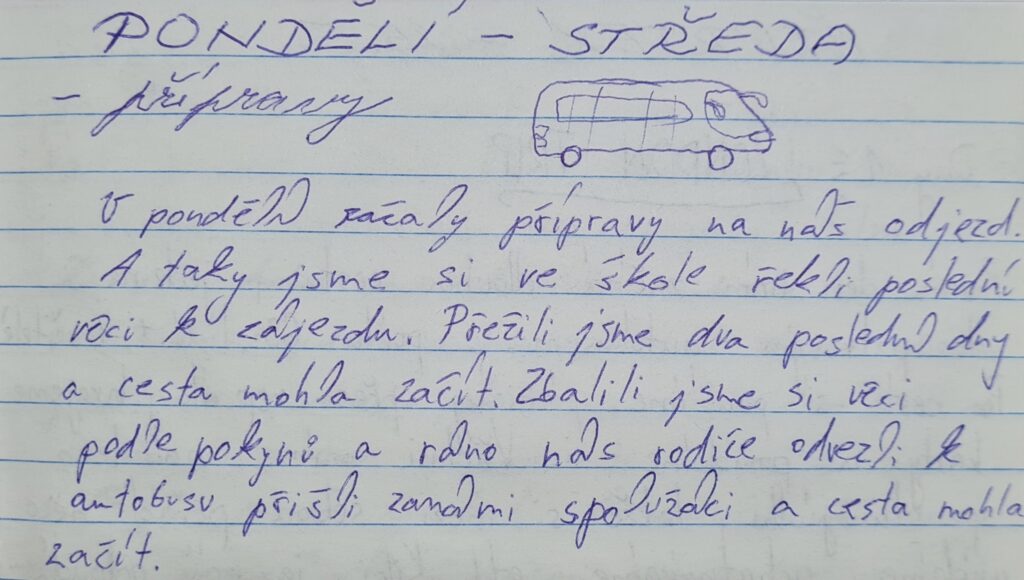 PONDĚLÍ - STŘEDA
- přípravy
V pondělí začaly přípravy na náš odjezd.
A taky jsme si ve škole řekli poslední
věci k zájezdu. Přežili jsme dva poslední dny
a cesta mohla začít. Zbalili jsme si věci
podle pokynů a ráno nás rodiče odvezli k
autobusu přišli za námi spolužáci a cesta mohla
začít.